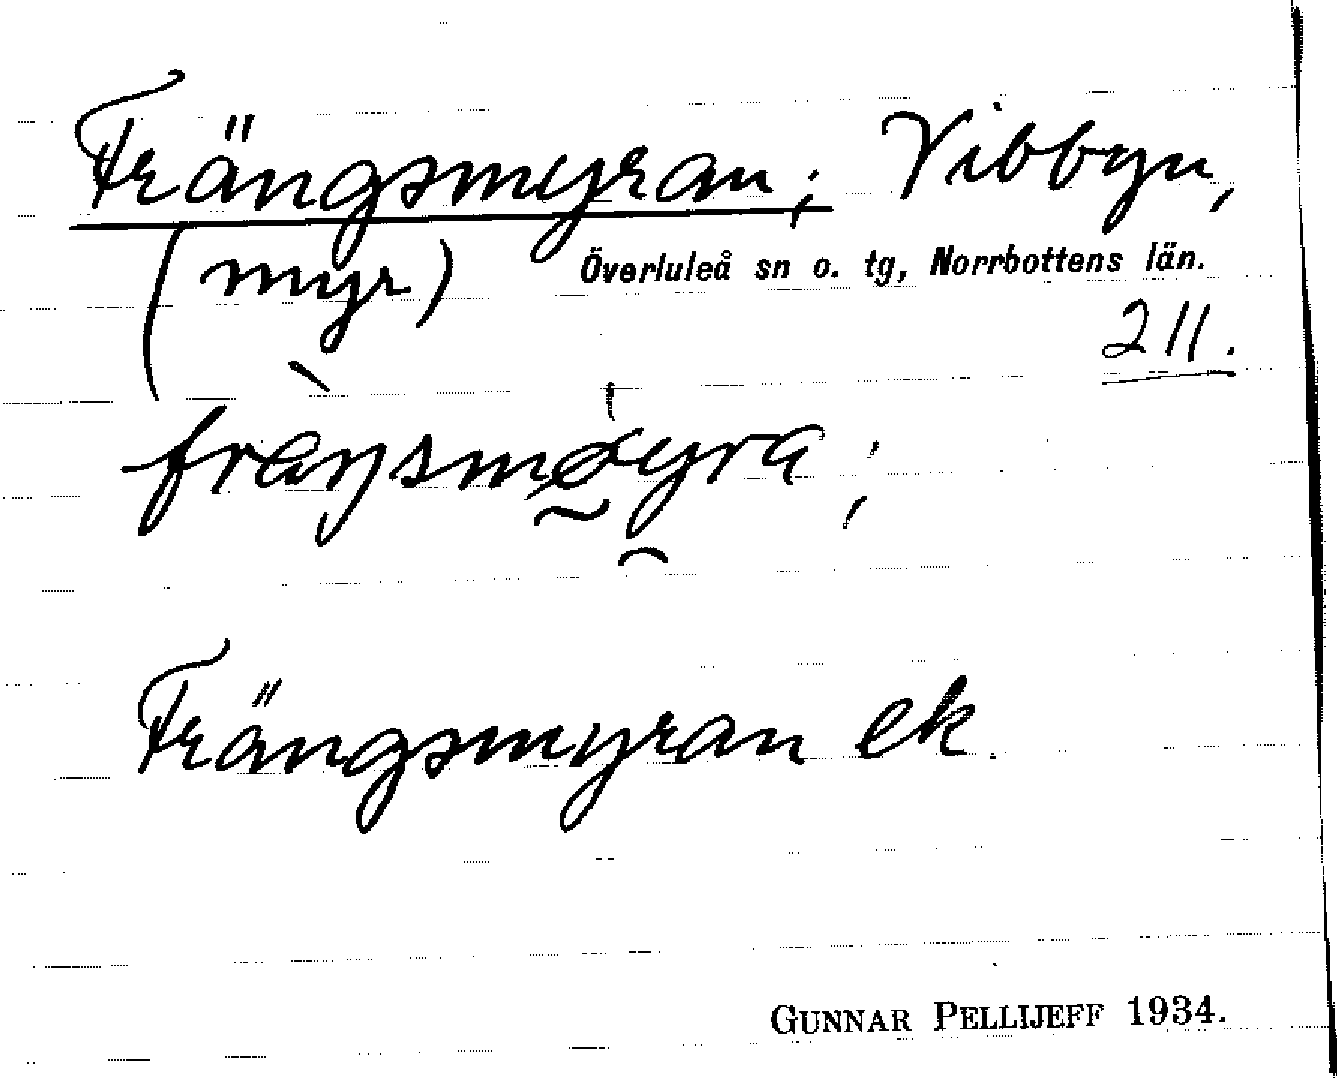 Frängsmyran; Vibbyn,
(myr) Överluleå sn o. tg, Norrbottens län.
211.
Frängsmyran ek.
GUNNAR PELLIJEFF 1934.